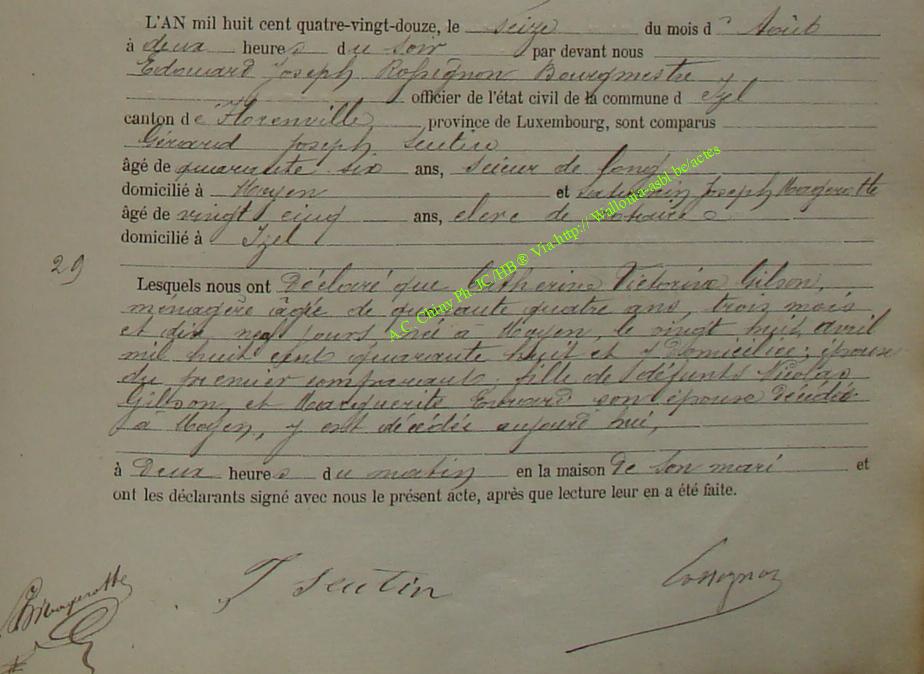 L'AN mil huit cent quatre-vingt-douze, le seize du mois d' Août
à deux heures du soir par devant nous
Edouard Joseph Rossignon Bourgmestre
officier de l'état civil de la commune d Izel
canton de Florenville province de Luxembourg, sont comparus
Gérard Joseph Seutin
âgé de quarante six ans, scieur de long
domicilié à Moyen et Saturnin Joseph Magerotte
âgé de vingt cinq ans, clerc de notaire
domicilié à Izel
29
Lesquels nous ont Déclaré que Catherine Victorine Gilson,
ménagère âgée de quarante quatre ans, trois mois
et dix neuf jours née à Moyen, le vingt huit avril
mil huit cent quarante huit et y Domiciliée; épouse
du premier comparant; fille de défunts Nicolas
Gilson et Marguerite Evrard son épouse décédée
à Moyen, y est décédée aujourd'hui,
à Deux heures du matin en la maison de son mari et
ont les déclarants signé avec nous le présent acte, après que lecture leur en a été faite.
Magerotte
J Seutin
Rossignon
A.C. Chiny Ph JC/HB® Via http:// Wallonia-asbl be/actes